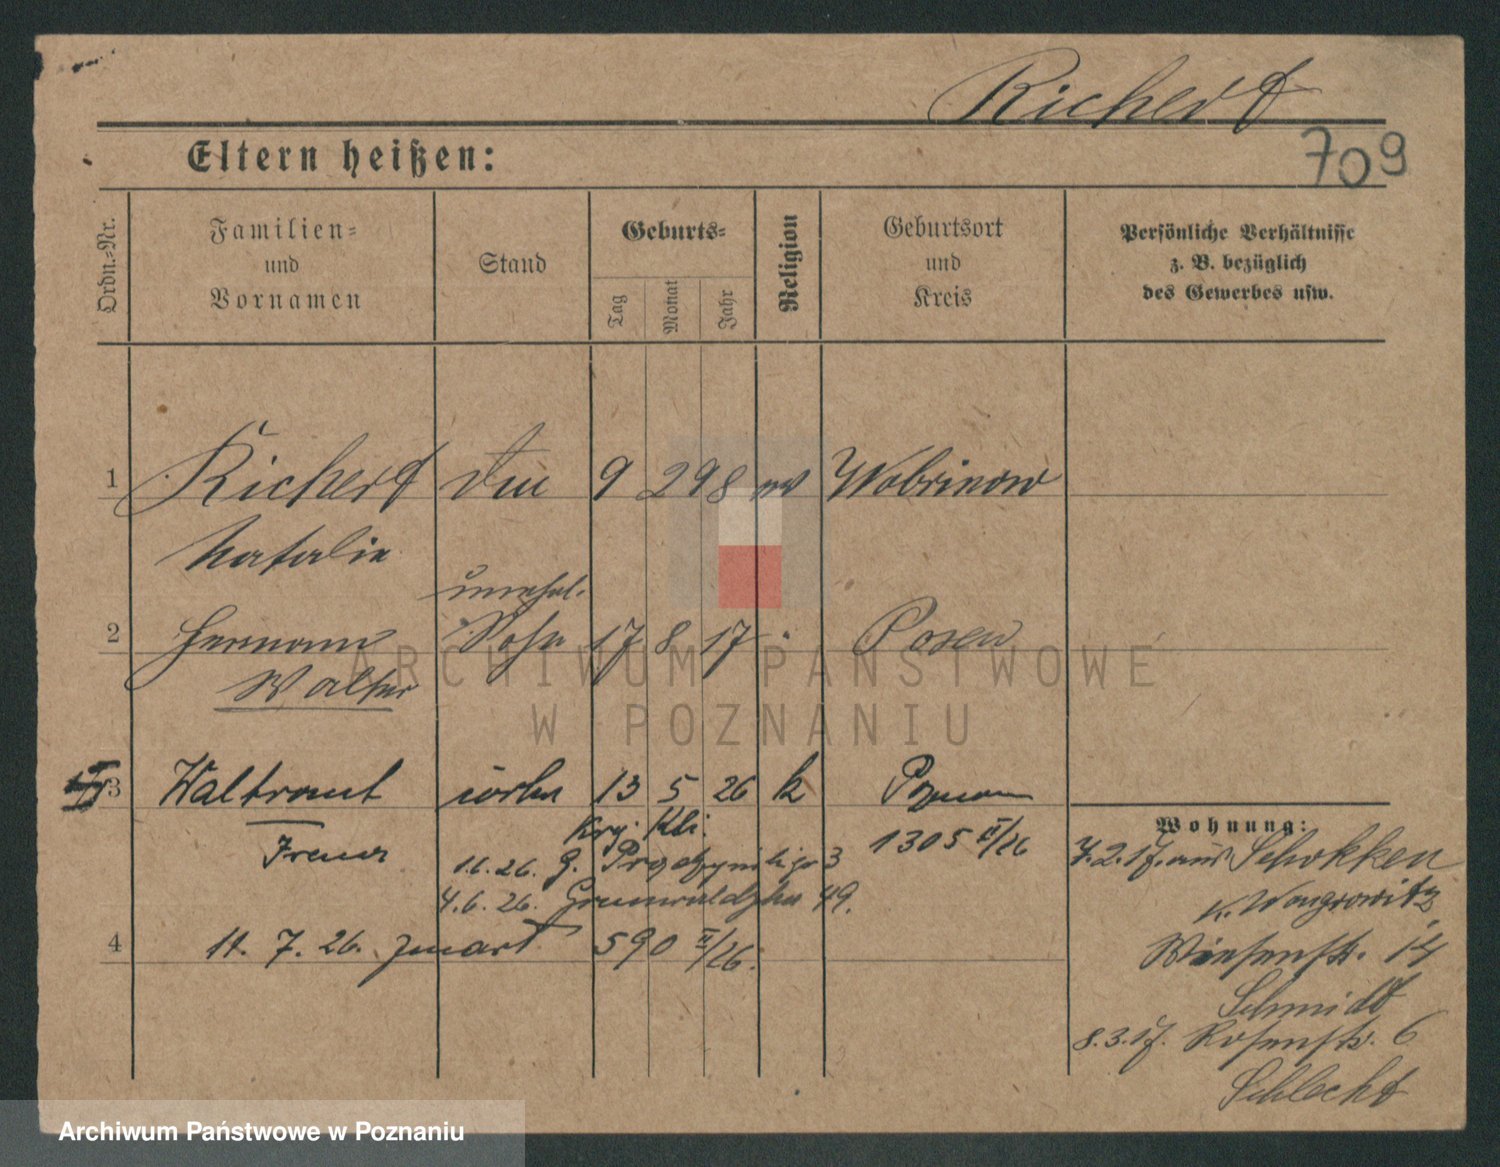 Richert
709
Eltern heißen:
Ordn.-Nr.
Familien-
und
Vornamen
Stand
Geburts-
Tag
Monat
Jahr
Religion
Geburtsort
und
Kreis
Persönliche Verhältnisse
z. B. bezüglich
des Gewerbes usw.
1 Richert 9 2 98 Wobrinow
Natalie
unehel.
2 Hermann Sohn 17 8 17 Posen
Walter
3 Waltraut córka 13 5 26 k Poznań
Irena
1305 II/26
1.6.26. G. 3
4.6.26. Grunwaldzka 49.
4 11. 7. 26. zmarł 590 II/26.
Wohnung:
7.2.17. aus Schokken
K. Wongrowitz
Wiesenstr. 14
Schmidt
8.3.17. Rosenstr. 6
Schlecht
ARCHIWUM PAŃSTWOWE
W POZNANIU
Archiwum Państwowe w Poznaniu